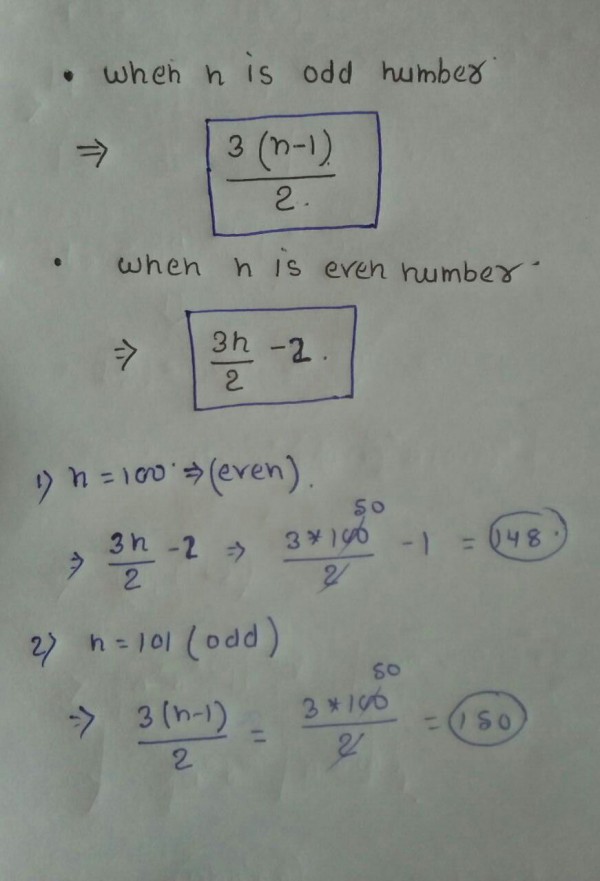 • when n is odd number
⇒ 3 (n-1) / 2.
• when n is even number
⇒ 3n / 2 - 2.
1) n = 100 ⇒ (even).
⇒ 3n / 2 - 2 ⇒ 3 * 100 / 2 - 1 = 148.
50
2) n = 101 (odd)
⇒ 3 (n-1) / 2 = 3 * 100 / 2 = 150
50